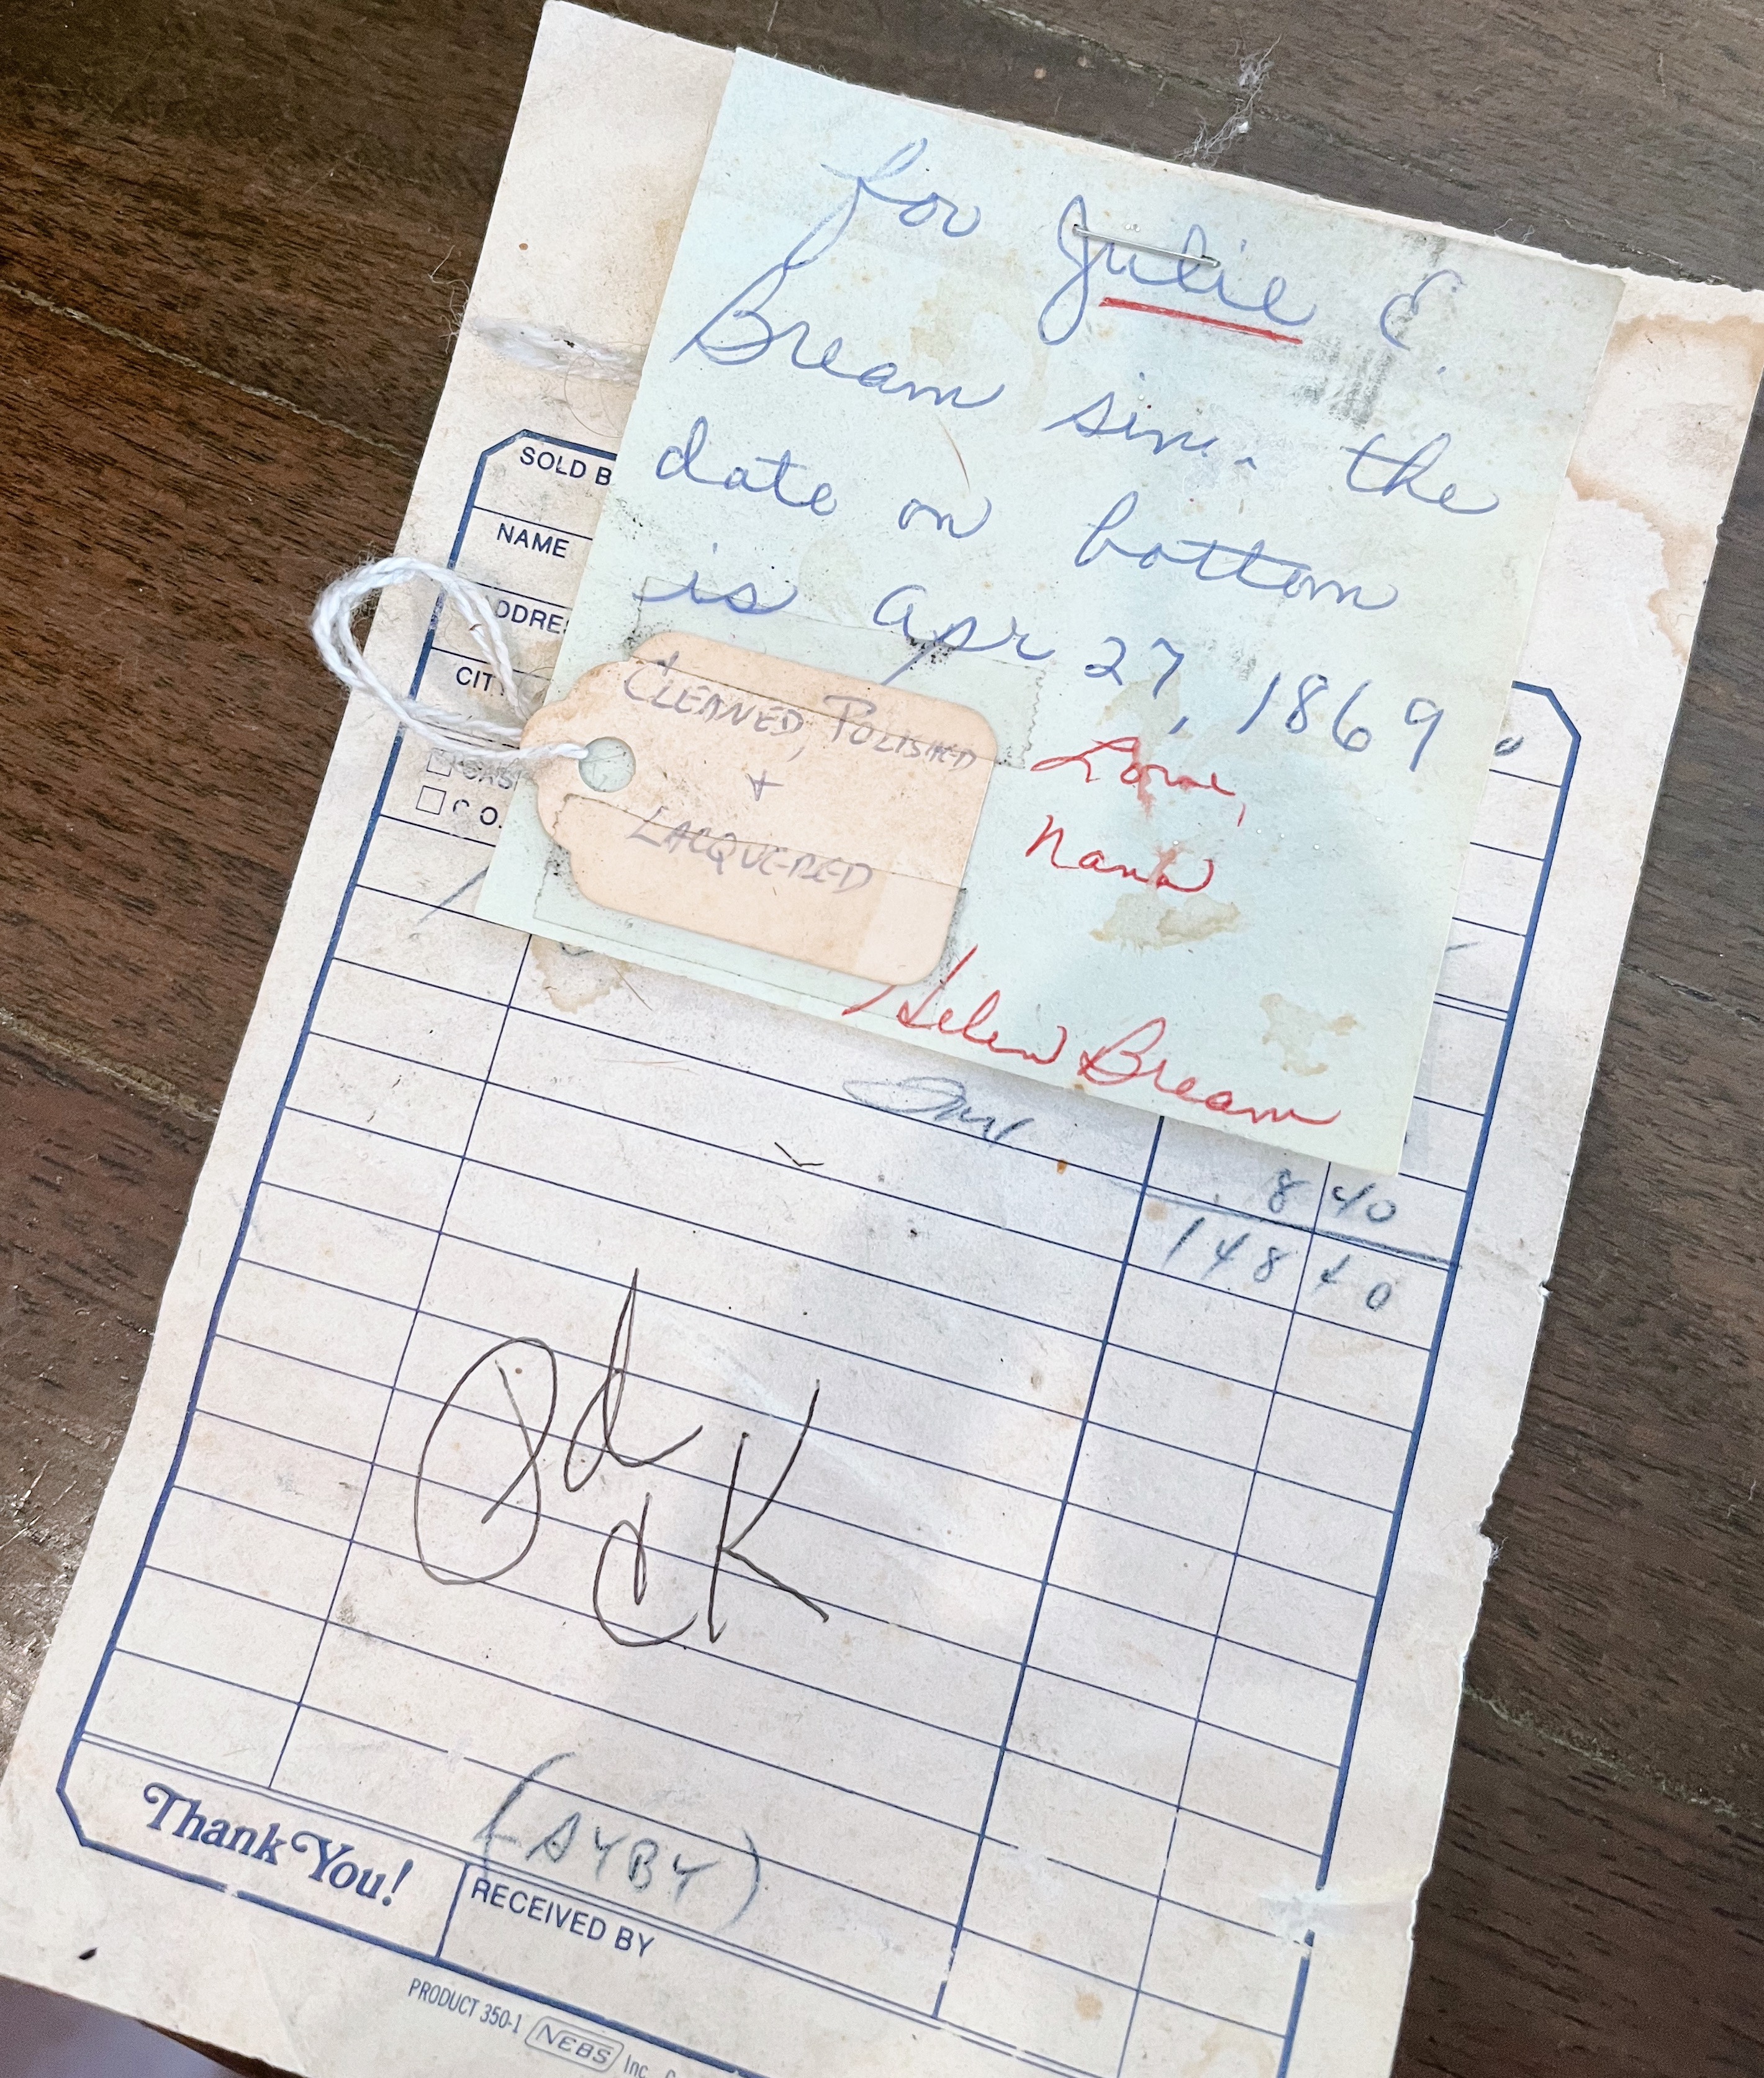 for Julie E.
Bream since the
date on bottom
is Apr 27, 1869
Love,
Nana
Helen Bream
CLEANED, POLISHED
+
LACQUERED
SOLD B
NAME
ADDRE
CITY
CAS
C.O.
8 40
148 40
Pd
CK
(AYBY)
Thank You!
RECEIVED BY
PRODUCT 350-1 NEBS Inc.